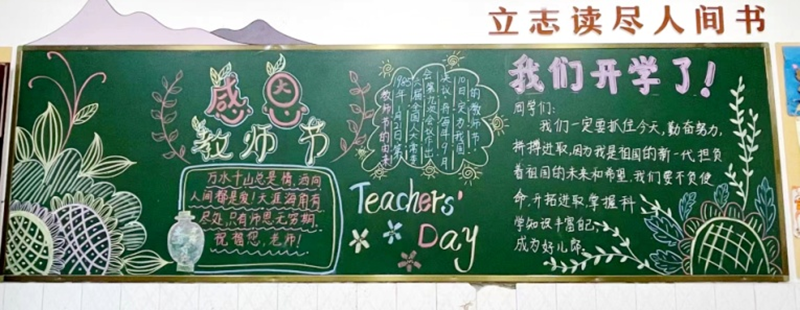 立志读尽人间书
感恩
教师节
万水千山总是情,洒向
人间都是爱!天涯海角有
尽处,只有师恩无穷期.
祝福您,老师!
教师节的由来
1985年1月21日第
六届全国人大常委
会第九次会议作出
决议,将每年9月
10日定为我国
的教师节.
Teachers'
Day
我们开学了!
同学们:
我们一定要抓住今天,勤奋努力,
拼搏进取,因为我是祖国的新一代担负
着祖国的未来和希望,我们要不负使
命,开拓进取掌握科
学知识丰富自己,
成为好儿郎.